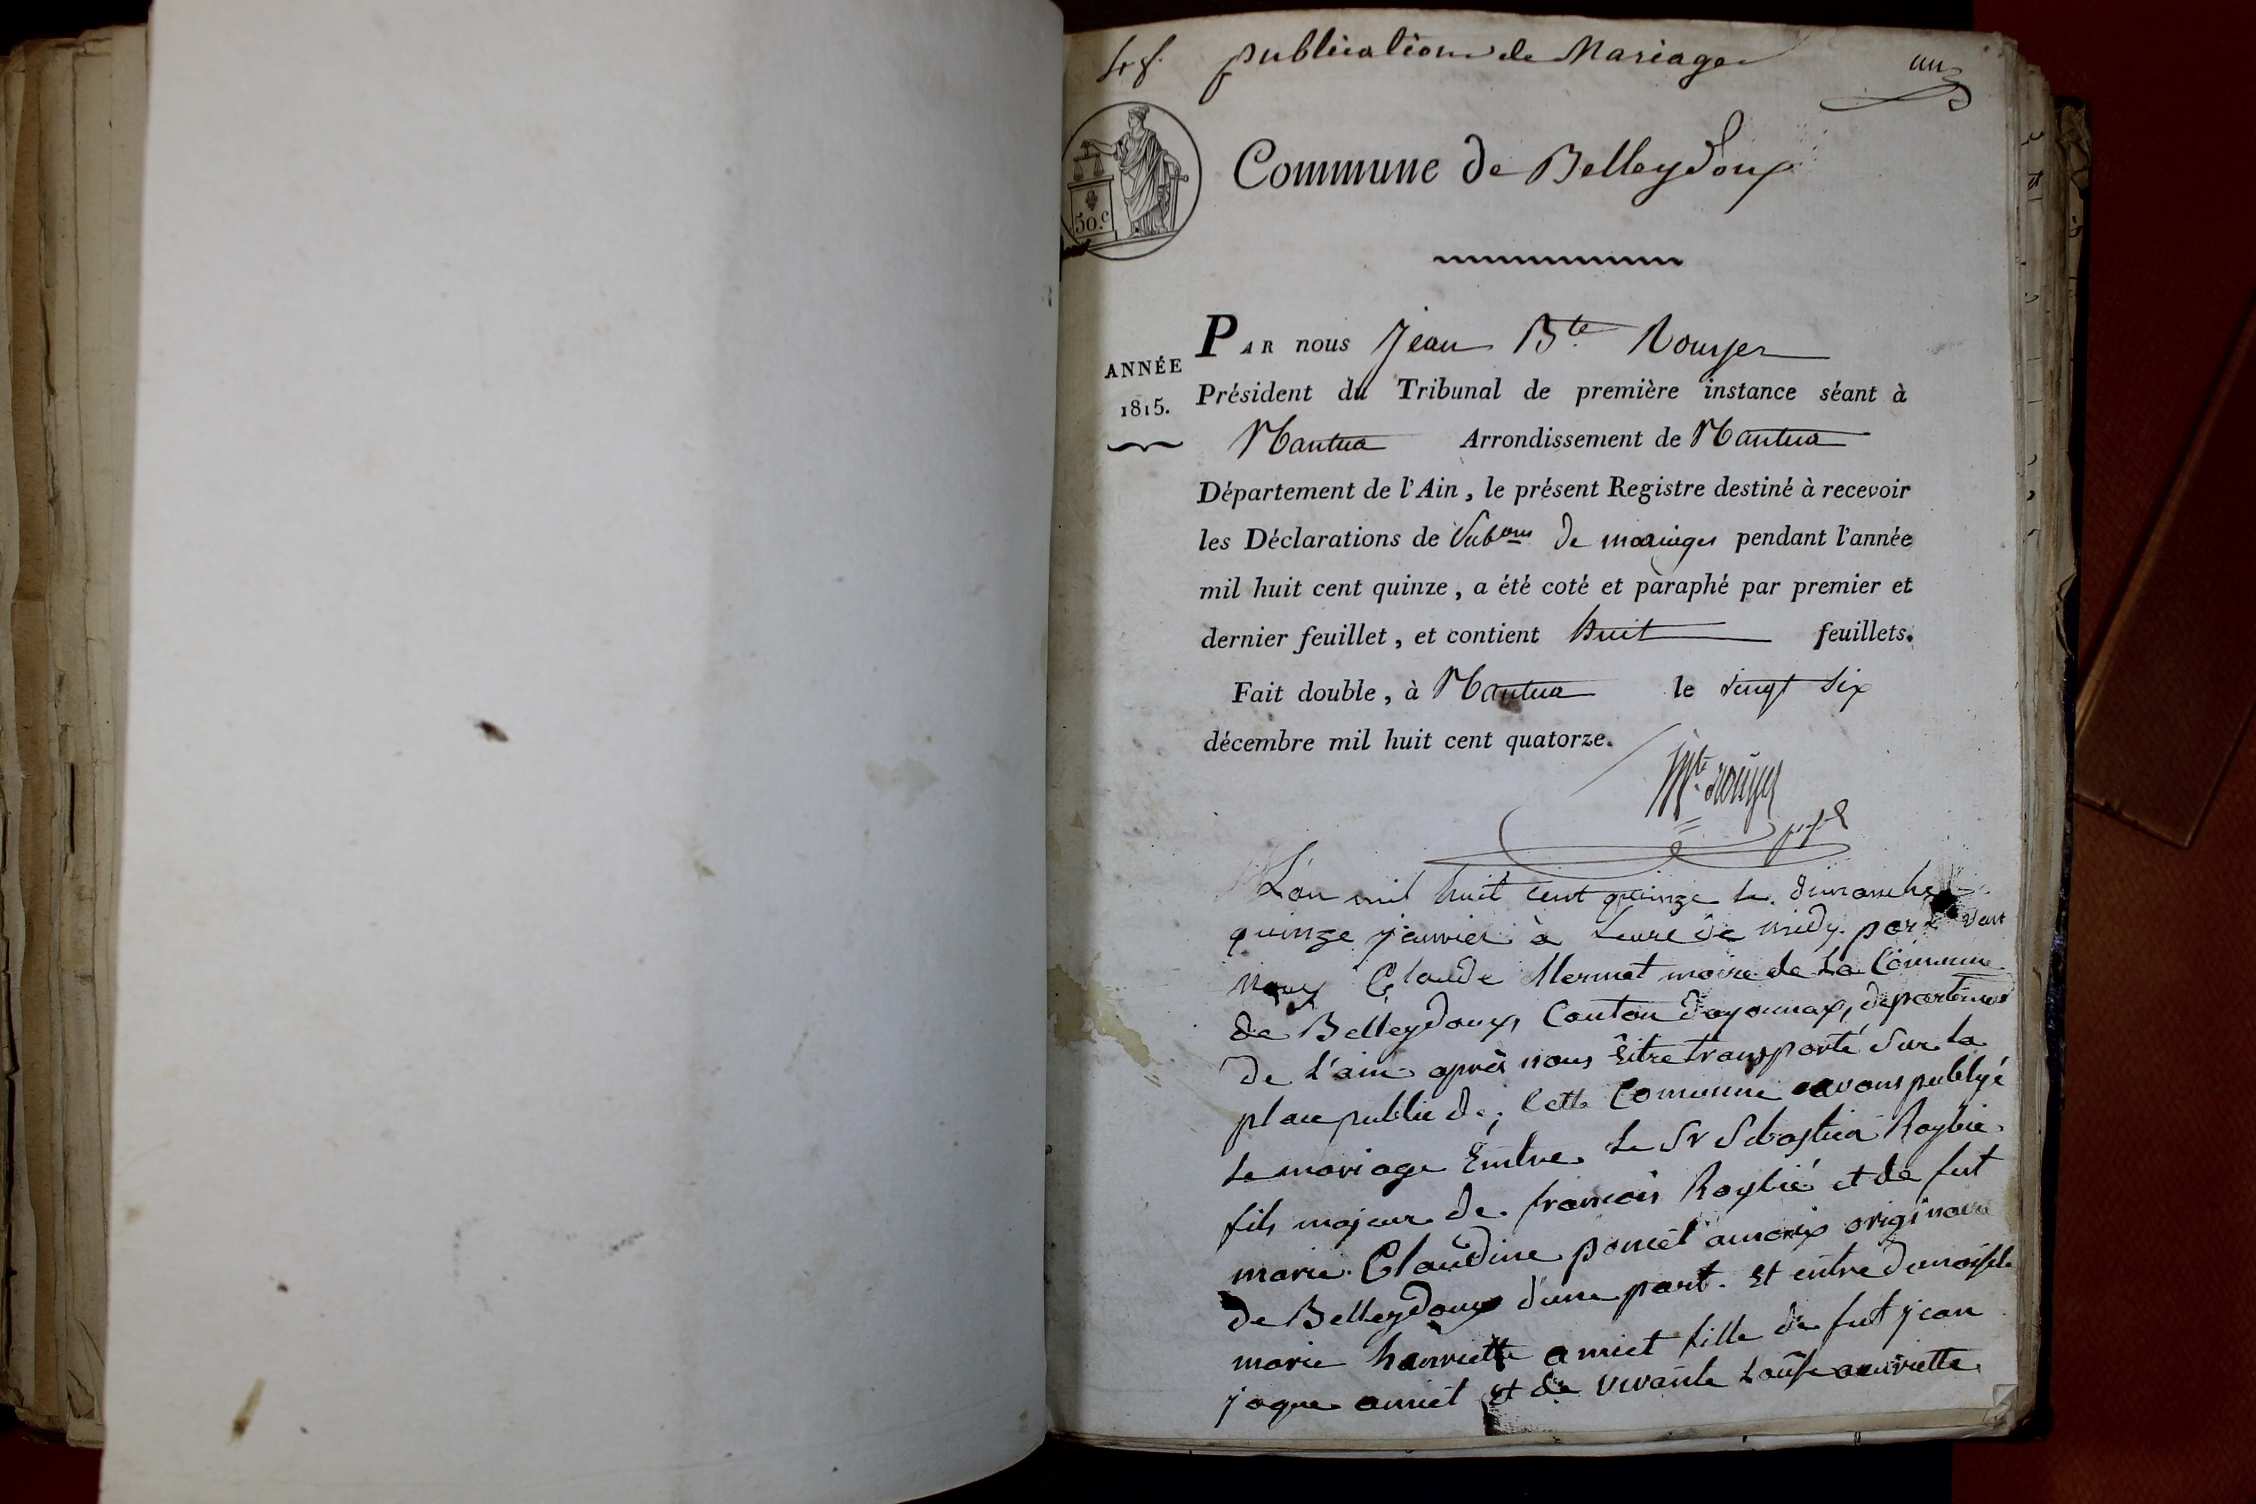 4 f. publications de Mariages un
50.c
Commune de Belleydoux
ANNÉE
1815.
PAR nous Jean Bte Rouyer
Président du Tribunal de première instance séant à
Nantua Arrondissement de Nantua
Département de l'Ain, le présent Registre destiné à recevoir
les Déclarations de Pubons de mariages pendant l'année
mil huit cent quinze, a été coté et paraphé par premier et
dernier feuillet, et contient huit feuillets.
Fait double, à Nantua le vingt six
décembre mil huit cent quatorze.
Bte rouyer
L'an mil huit cent quinze le dimanche
quinze janvier à heure de midy par devant
nous Claude Mermet maire de La Commune
de Belleydoux, Canton d'oyonnax, departement
de l'ain après nous Êitre transporté sur la
place public de cette Commune avons publyé
le mariage Entre Le Sr Sebastien Roybié
fils majeur de francois Roybié et de fut
marie Claudine poncet amoix originaire
de Belleydoux d'une part. Et entre demoiselle
marie hanriette amiet fille de fut jean
jaque amiet et de vivante Louise